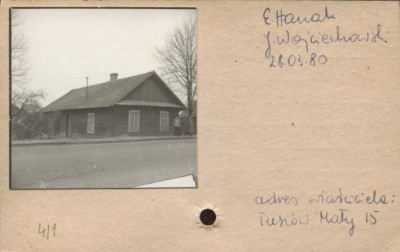 E. Hanak
J. Wojciechowski
28.03.80
adres właściciela:
Tuszów Mały 15
4/1